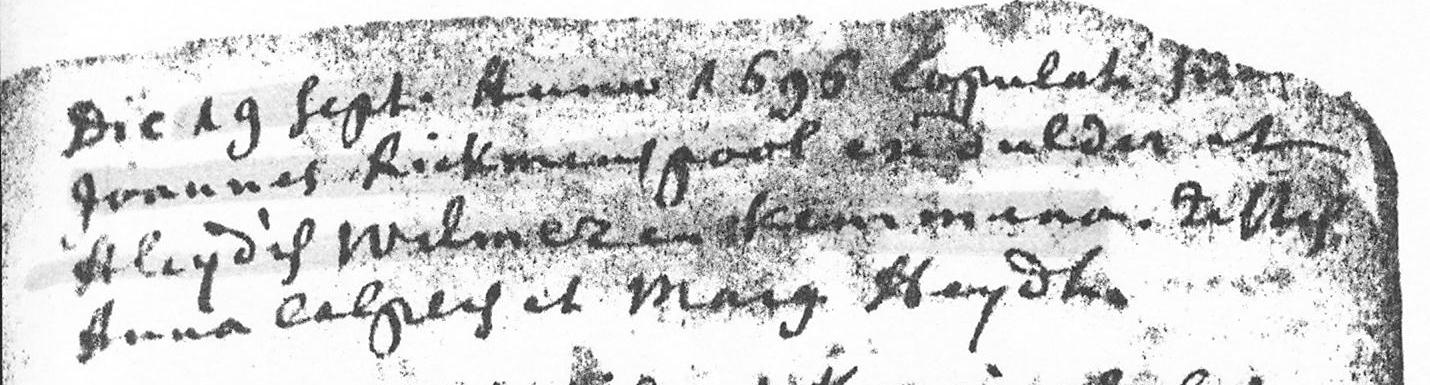 Die 19 Sept. Anno 1696 Copulati sunt
Joannes Rickmenspoel ex Dulder et
Aleydis Wilmer ex Hemmena. Testes
Anna et Marg